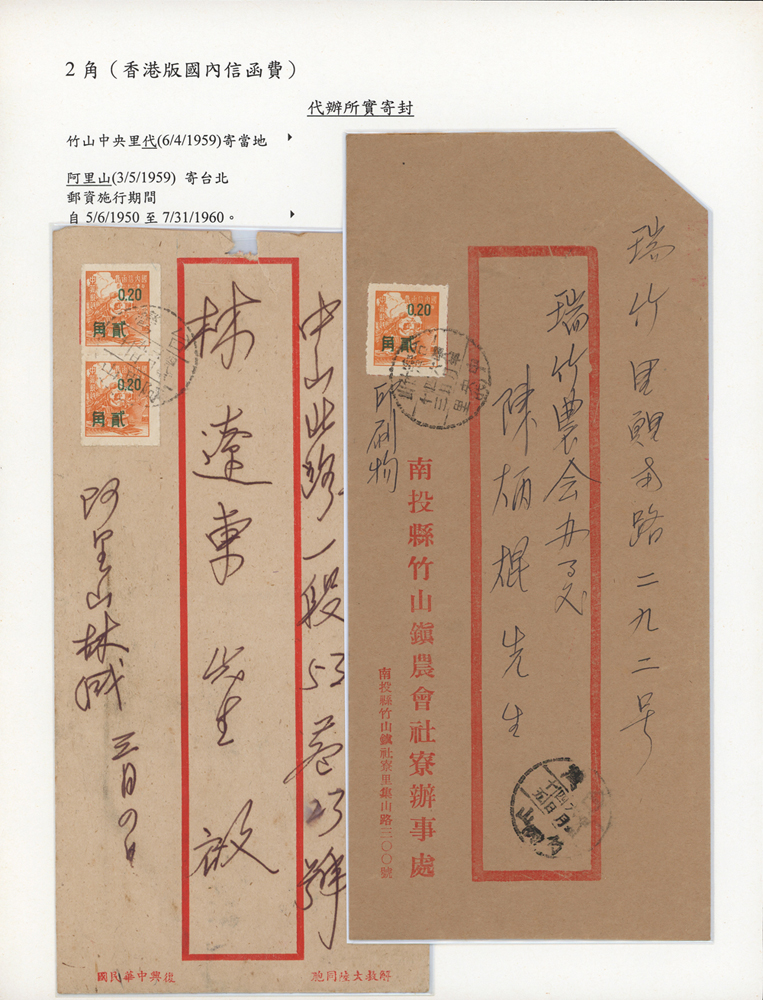 2 角（香港版國內信函費）
代辦所實寄封
竹山中央里代(6/4/1959)寄當地
阿里山(3/5/1959) 寄台北
郵資施行期間
自 5/6/1950 至 7/31/1960。
瑞竹里鯉南路二九二号
瑞竹農会办事处
陳炳棍先生
0.20
角貳
印刷物
南投縣竹山鎮農會社寮辦事處
南投縣竹山鎮社寮里集山路三〇〇號
中山北路一段53巷23號
林蓮東先生 啟
0.20
角貳
0.20
角貳
阿里山林
三月四日
國民華中興復
胞同陸大救解